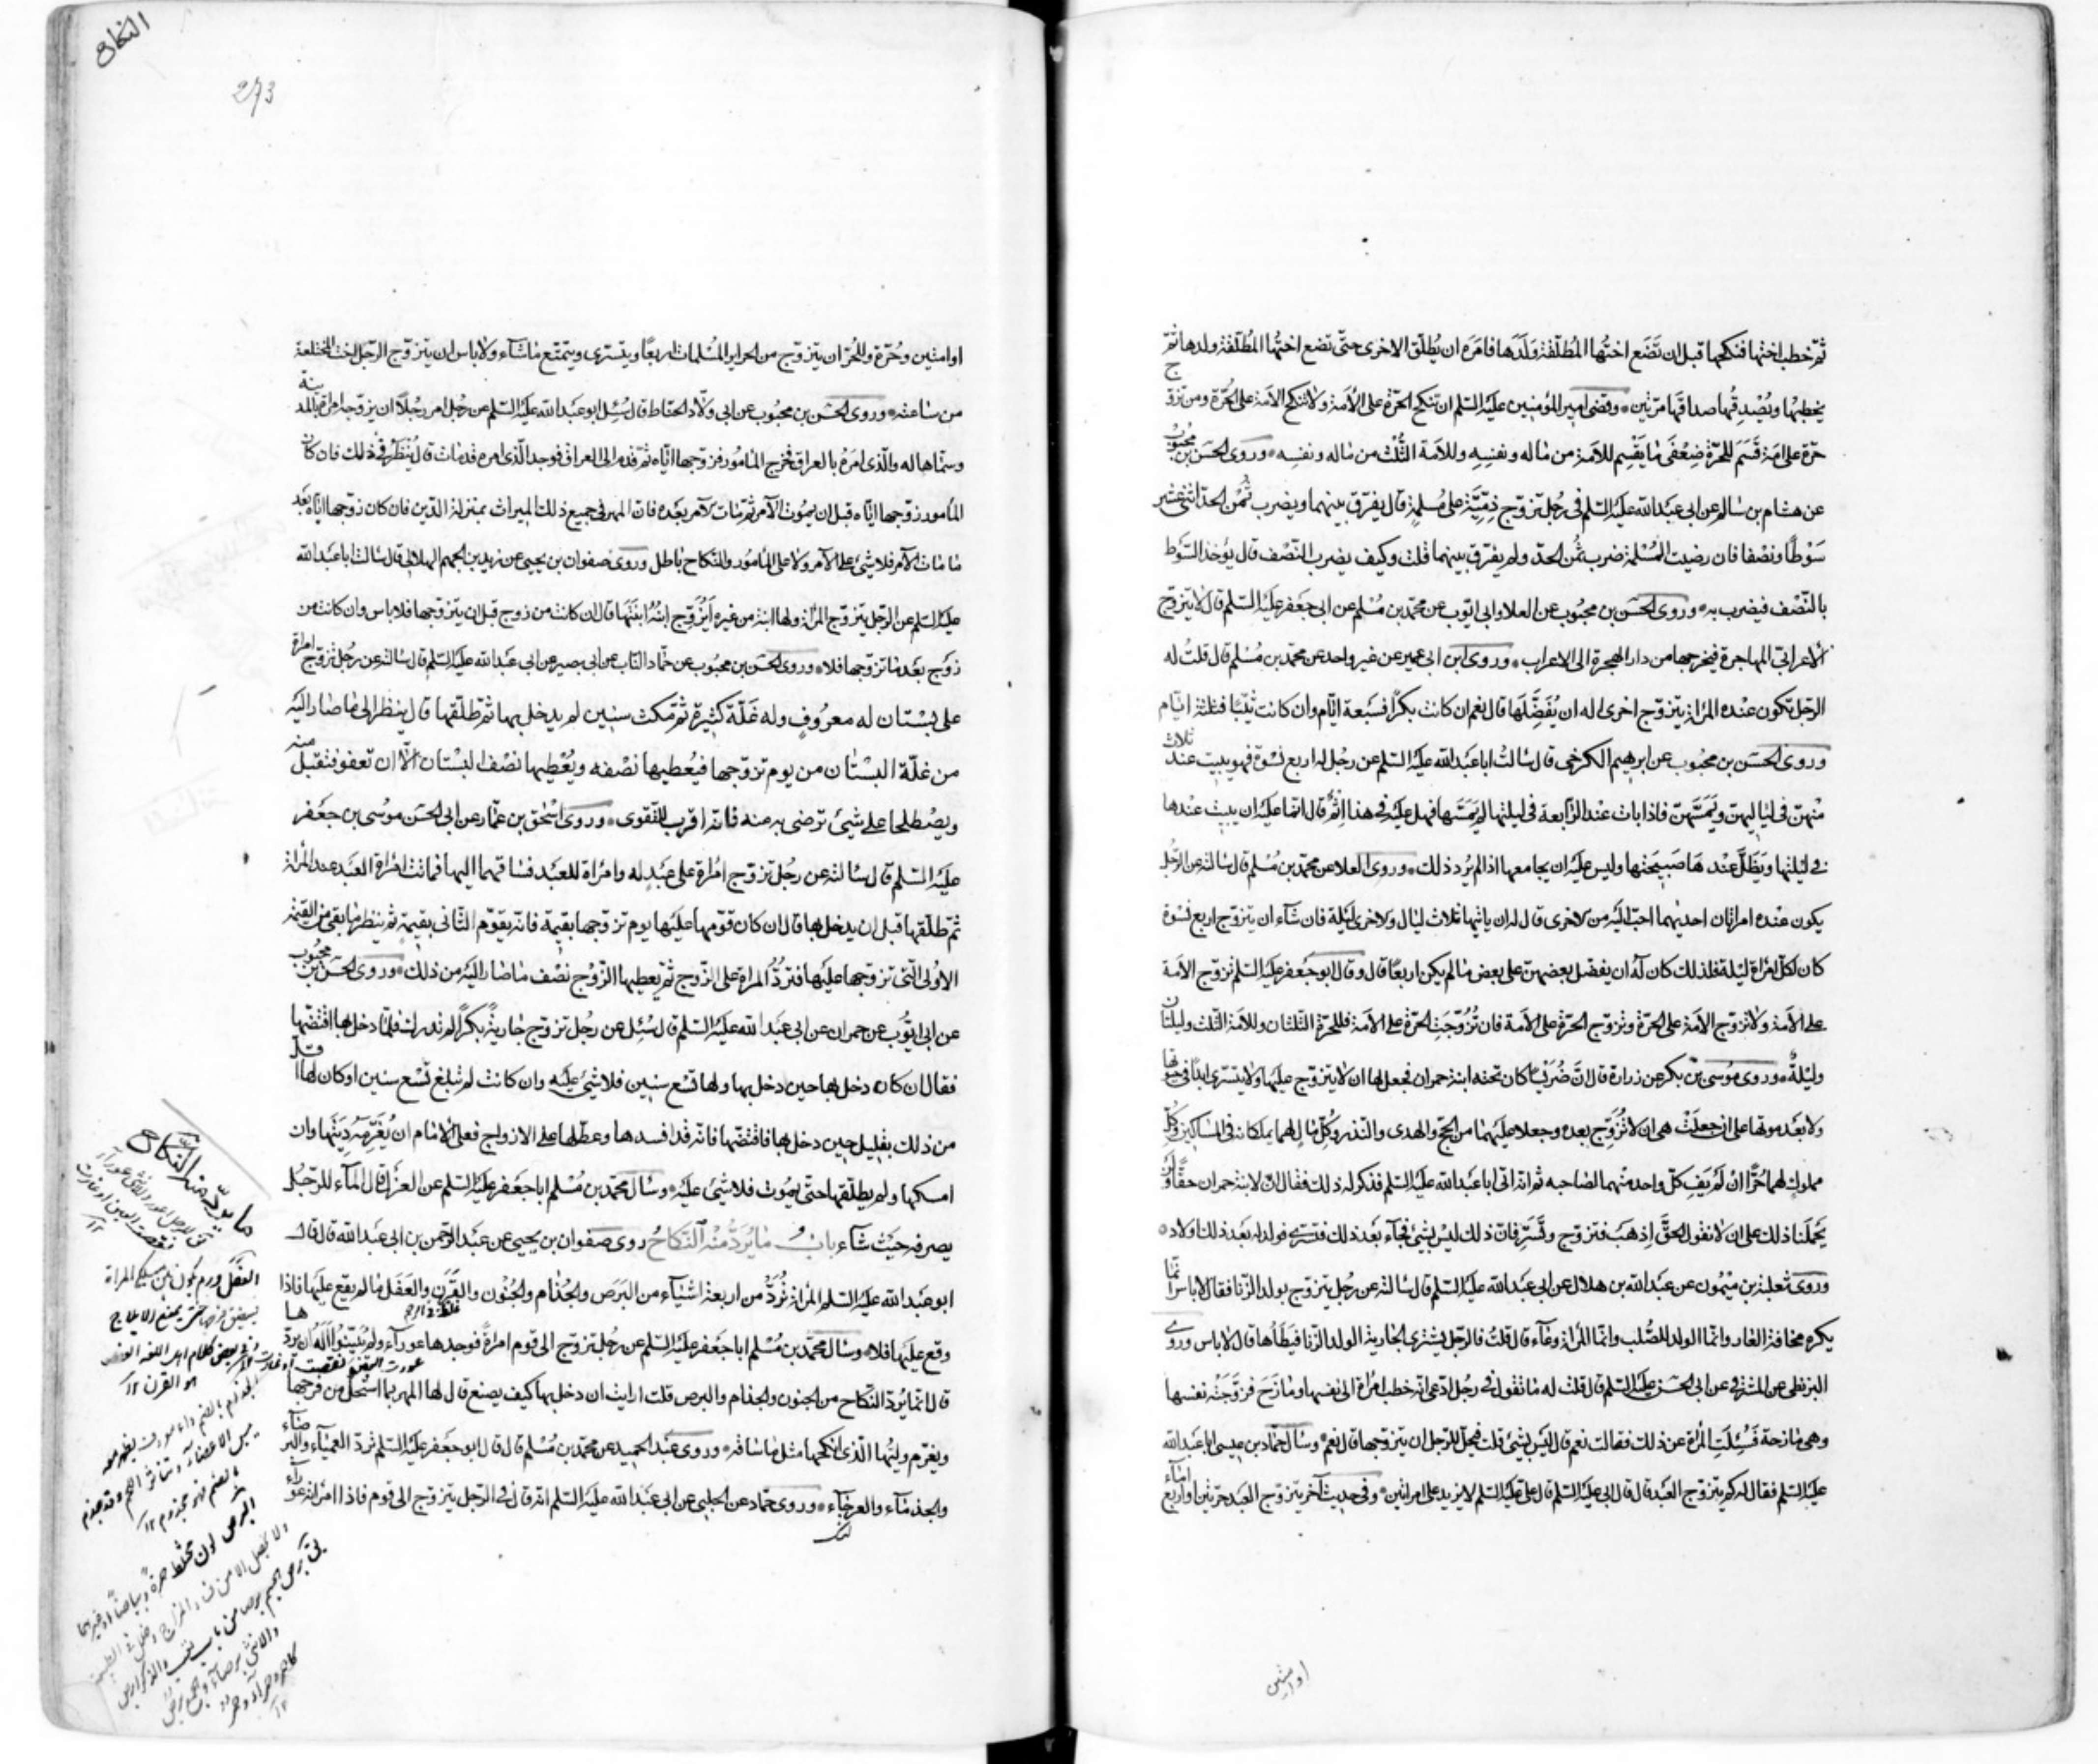 ثم خطب اختها فنكحها قبل ان تضع اختها المطلقة ولدها فامره ان يطلق الاخرى حتى تضع اختها المطلقة ولدها ثم
يخطبها ويصدقها صداقها مرتين وقضى امير المؤمنين عليه السلم ان تنكح الحرة على الامة ولا تنكح الامة على الحرة ومن تزوج
حرة على امة قسم للحرة ضعفى ما يقسم للامة من ماله ونفسه وللامة الثلث من ماله ونفسه وروى الحسن بن محبوب
عن هشام بن سالم عن ابى عبد الله عليه السلم فى رجل تزوج ذمية على مسلمة قال يفرق بينهما ويضرب ثمن الحد اثنى عشر
سوطا ونصفا فان رضيت المسلمة ضرب ثمن الحد ولم يفرق بينهما قلت وكيف يضرب النصف قال يؤخذ السوط
بالنصف فيضرب به وروى الحسن بن محبوب عن العلا وابى ايوب عن محمد بن مسلم عن ابى جعفر عليه السلم قال لا يتزوج
الاعرابى المهاجرة فيخرجها من دار الهجرة الى الاعراب وروى ابن ابى عمير عن غير واحد عن محمد بن مسلم قال قلت له
الرجل تكون عنده المراة يتزوج اخرى اله ان يفضلها قال نعم ان كانت بكرا فسبعة ايام وان كانت ثيبا فثلثة ايام
وروى الحسن بن محبوب عن ابرهيم الكرخى قال سالت ابا عبد الله عليه السلم عن رجل له اربع نسوة فهو يبيت عند ثلاث
منهن فى لياليهن ويمسهن فاذا بات عند الرابعة فى ليلتها لم يمسها فهل عليه فى هذا اثم قال انما عليه ان يبيت عندها
فى ليلتها ويظل عندها صبيحتها وليس عليه ان يجامعها اذا لم يرد ذلك وروى العلا عن محمد بن مسلم قال سالته عن الرجل
يكون عنده امراتان احديهما احب اليه من الاخرى قال له ان ياتيها ثلاث ليال وللاخرى ليلة فان شاء ان يتزوج اربع نسوة
كان لكل امراة ليلة فلذلك كان له ان يفضل بعضهن على بعض ما لم يكن اربعا قال وقال ابو جعفر عليه السلم تزوج الامة
على الامة ولا تزوج الامة على الحرة وتزوج الحرة على الامة فان تزوجت الحرة على الامة فللحرة الثلثان وللامة الثلث وليلتان
وليلة وروى موسى بن بكر عن زرارة قال ان ضريسا كان تحته ابنة حمران فجعل لها ان لا يتزوج عليها ولا يتسرى ابدا فى حيوتها
ولا بعد موتها على ان جعلت هى ان لا تزوج بعده وجعلا عليهما من الحج والهدى والنذر وكل مال لهما يملكانه فى المساكين وكل
مملوك لهما حرا ان لم يف كل واحد منهما لصاحبه ثم انه اتى ابا عبد الله عليه السلم فذكر له ذلك فقال ان لابنة حمران حقا ولن
يحملنا ذلك على ان لا نقول الحق اذهب فتزوج وتسر فان ذلك ليس بشئ فجاء بعد ذلك فتسرى فولد له بعد ذلك اولاد
وروى ثعلبة بن ميمون عن عبد الله بن هلال عن ابى عبد الله عليه السلم قال سالته عن رجل يتزوج بولد الزنا فقال لا باس انما
يكره مخافة العار وانما الولد للصلب وانما المراة وعاء قال قلت فالرجل يشترى الجارية الولد الزنا فيطاها قال لا باس وروى
البزنطى عن المشرقى عن ابى الحسن عليه السلم قال قلت له ما تقول فى رجل ادعى انه خطب امراة الى نفسها ومازح فزوجته نفسها
وهى مازحة فسئلت المراة عن ذلك فقالت نعم قال ليس بشئ قلت فيحل للرجل ان يتزوجها قال نعم وسال حماد بن عيسى ابا عبد الله
عليه السلم فقال له كم يتزوج العبد قال قال ابى عليه السلم قال على عليه السلم لا يزيد على امراتين وفى حديث آخر يتزوج العبد حرتين او اربع اماء
او امتين
النكاح
273
او امتين وحرة وللحر ان يتزوج من الحراير المسلمات اربعا ويتسرى ويتمتع ما شاء ولا باس ان يتزوج الرجل اخت المختلعة
من ساعته وروى الحسن بن محبوب عن ابى ولاد الحناط قال سئل ابو عبد الله عليه السلم عن رجل امر رجلا ان يزوجه امراة بالمدينة
وسماها له والذى امره بالعراق فخرج المامور فزوجها اياه ثم قدم الى العراق فوجد الذى امره قد مات قال ينظر فى ذلك فان كان
المامور زوجها اياه قبل ان يموت الآمر ثم مات الآمر بعده فان المهر فى جميع ذلك الميراث بمنزلة الدين فان كان زوجها اياه بعد
ما مات الآمر فلا شئ على الآمر ولا على المامور والنكاح باطل وروى صفوان بن يحيى عن زيد بن الجهم الهلالى قال سالت ابا عبد الله
عليه السلم عن الرجل يتزوج المراة ولها ابنة من غيره ايزوج ابنه ابنتها قال ان كانت من زوج قبل ان يتزوجها فلا باس وان كانت من
زوج بعد ما تزوجها فلا وروى الحسن بن محبوب عن حماد الناب عن ابى بصير عن ابى عبد الله عليه السلم قال سالته عن رجل تزوج امراة
على بستان له معروف وله غلة كثيرة ثم مكث سنين لم يدخل بها ثم طلقها قال ينظر الى ما صار اليه
من غلة البستان من يوم تزوجها فيعطيها نصفه ويعطيها نصف البستان الا ان تعفو فتقبل منه
ويصطلحا على شئ ترضى به منه فانه اقرب للتقوى وروى اسحق بن عمار عن ابى الحسن موسى بن جعفر
عليه السلم قال سالته عن رجل تزوج امراة على عبد له وامراة للعبد فساقهما اليها فماتت امراة العبد عند المراة
ثم طلقها قبل ان يدخل بها قال ان كان قومها عليها يوم تزوجها بقيمة فانه يقوم الثانى بقيمة ثم ينظر ما بقى من القيمة
الاولى التى تزوجها عليها فترد المراة على الزوج ثم يعطيها الزوج نصف ما صار اليه من ذلك وروى الحسن بن محبوب
عن ابى ايوب عن حمران عن ابى عبد الله عليه السلم قال سئل عن رجل تزوج جارية بكرا لم تدرك فلما دخل بها افتضها
فقال ان كان دخل بها حين دخل بها ولها تسع سنين فلا شئ عليه وان كانت لم تبلغ تسع سنين او كان لها اقل
من ذلك بقليل حين دخل بها فافتضها فانه قد افسدها وعطلها على الازواج فعلى الامام ان يغرمه ديتها وان
امسكها ولم يطلقها حتى يموت فلا شئ عليه وسال محمد بن مسلم ابا جعفر عليه السلم عن العزل قال الماء للرجل
يصرفه حيث شاء باب ما يرد منه النكاح روى صفوان بن يحيى عن عبد الرحمن بن ابى عبد الله قال قال
ابو عبد الله عليه السلم المراة ترد من اربعة اشياء من البرص والجذام والجنون والقرن والعفل ما لم يقع عليها فاذا
وقع عليها فلا وسال محمد بن مسلم ابا جعفر عليه السلم عن رجل تزوج الى قوم امراة فوجدها عوراء ولم يبينوا اله ان يردها
قال انما يرد النكاح من الجنون والجذام والبرص قلت ارايت ان دخل بها كيف يصنع قال لها المهر بما استحل من فرجها
ويغرم وليها الذى انكحها مثل ما ساقه وروى عبد الحميد عن محمد بن مسلم قال قال ابو جعفر عليه السلم ترد العمياء والبرصاء
والجذماء والعرجاء وروى حماد عن الحلبى عن ابى عبد الله عليه السلم انه قال فى الرجل يتزوج الى قوم فاذا امراته عوراء
ما يرد منه النكاح
العفل ورم يكون بين مسلكى المراة